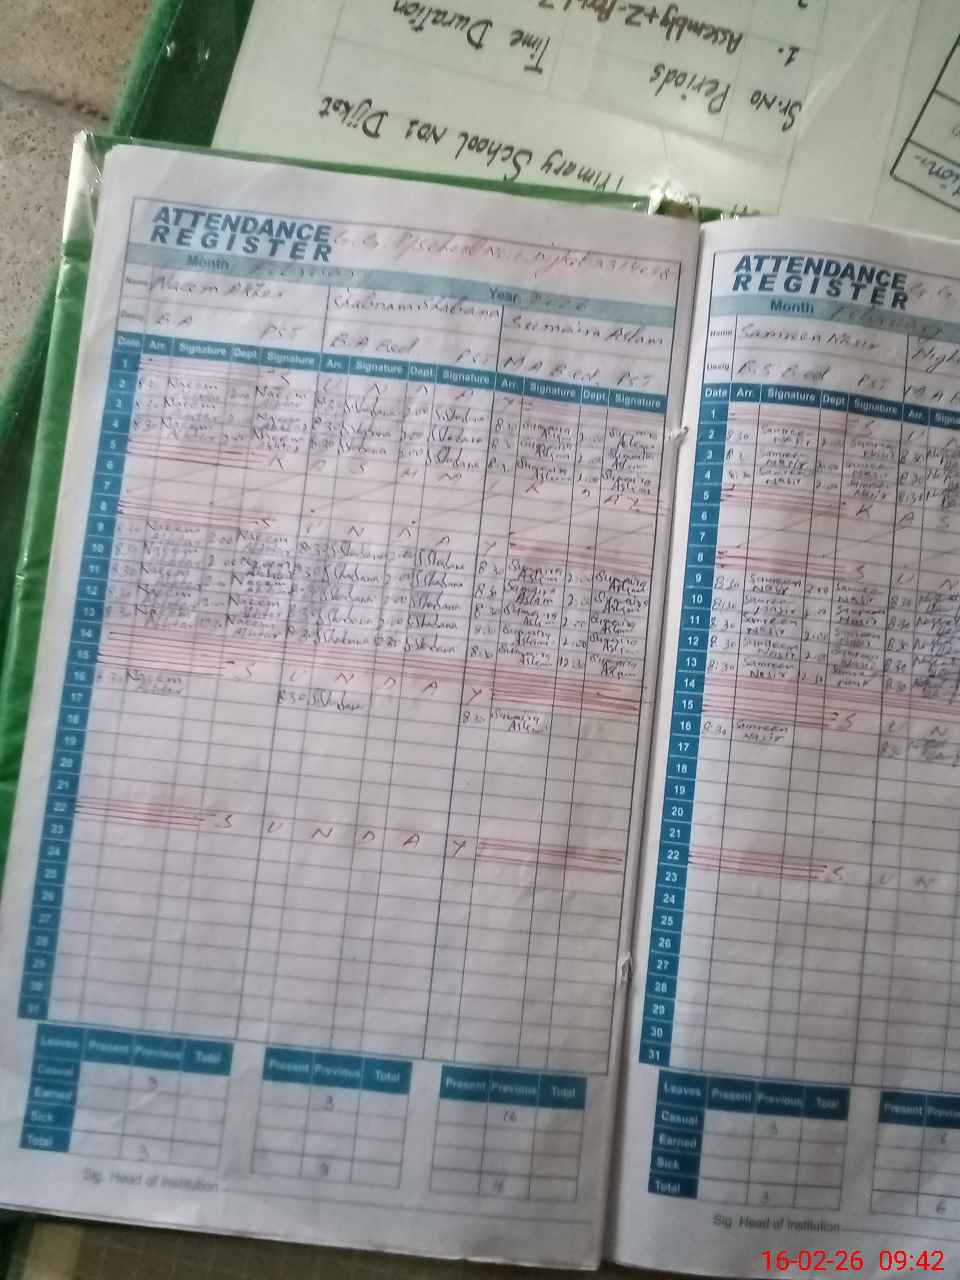 Time Duration
1. Assembly+Z-
Sr.No Periods
Primary School No1 Dijkot
ATTENDANCE
REGISTER
Month February Year 2026
Name Naeem Akhtar Shabnam Shabana Sumaira Aslam
Desig B.A PST B.A B.ed PST M.A B.ed. PST
Date Arr. Signature Dept Signature Arr. Signature Dept. Signature Arr. Signature Dept. Signature
1 S U N D A Y
2 Naeem Akhtar 2:00 Naeem Akhtar 8:30 S.Shabana 2:00 S.Shabana 8:30 Sumaira Aslam 2:00 Sumaira Aslam
3 8:30 Naeem Akhtar 2:00 Naeem Akhtar 8:30 S.Shabana 2:00 S.Shabana 8:30 Sumaira Aslam 2:00 Sumaira Aslam
4 8:30 Naeem Akhtar 2:00 Naeem Akhtar 8:30 S.Shabana 2:00 S.Shabana 8:30 Sumaira Aslam 2:00 Sumaira Aslam
5 K A S H M I R D A Y
6
7
8 S U N D A Y
9 Naeem Akhtar 2:00 Naeem Akhtar 8:30 S.Shabana 2:00 S.Shabana 8:30 Sumaira Aslam 2:00 Sumaira Aslam
10 8:30 Naeem Akhtar 2:00 Naeem Akhtar 8:30 S.Shabana 2:00 S.Shabana 8:30 Sumaira Aslam 2:00 Sumaira Aslam
11 8:30 Naeem Akhtar 2:00 Naeem Akhtar 8:30 S.Shabana 2:00 S.Shabana 8:30 Sumaira Aslam 2:00 Sumaira Aslam
12 8:30 Naeem Akhtar 2:00 Naeem Akhtar 8:30 S.Shabana 2:00 S.Shabana 8:30 Sumaira Aslam 2:00 Sumaira Aslam
13 8:30 Naeem Akhtar Naeem Akhtar 8:30 S.Shabana S.Shabana 8:30 Sumaira Aslam 12:30 Sumaira Aslam
14
15 S U N D A Y
16 8:30 Naeem Akhtar 8:30 S.Shabana 8:30 Sumaira Aslam
17
18
19
20
21
22 S U N D A Y
23
24
25
26
27
28
29
30
31
Leaves Present Previous Total Present Previous Total Present Previous Total
Casual 3 3 16
Earned
Sick
Total 3
Sig. Head of Institution
ATTENDANCE
REGISTER
Month February
Name Samreen Nasir
Desig B.S B.ed PST M.A
Date Arr. Signature Dept Signature Arr.
1 S U
2 8:30 Samreen Nasir 2:00 Samreen Nasir 8:30
3 Samreen Nasir 2:00 Samreen Nasir 8:30
4 8:30 Samreen Nasir 2:00 Samreen Nasir 8:30
5 K A S
6
7
8 S U N
9 8:30 Samreen Nasir 2:00 Samreen Nasir 8:30
10 8:30 Samreen Nasir Samreen Nasir 8:30
11 8:30 Samreen Nasir 2:00 Samreen Nasir 8:30
12 8:30 Samreen Nasir Samreen Nasir 8:30
13 8:30 Samreen Nasir Samreen Nasir 8:30
14
15 S U N
16 8:30 Samreen Nasir 8:30
17
18
19
20
21
22 S U N
23
24
25
26
27
28
29
30
31
Leaves Present Previous Total Present
Casual 3 6
Earned
Sick
Total 3 6
Sig. Head of Institution
16-02-26 09:42